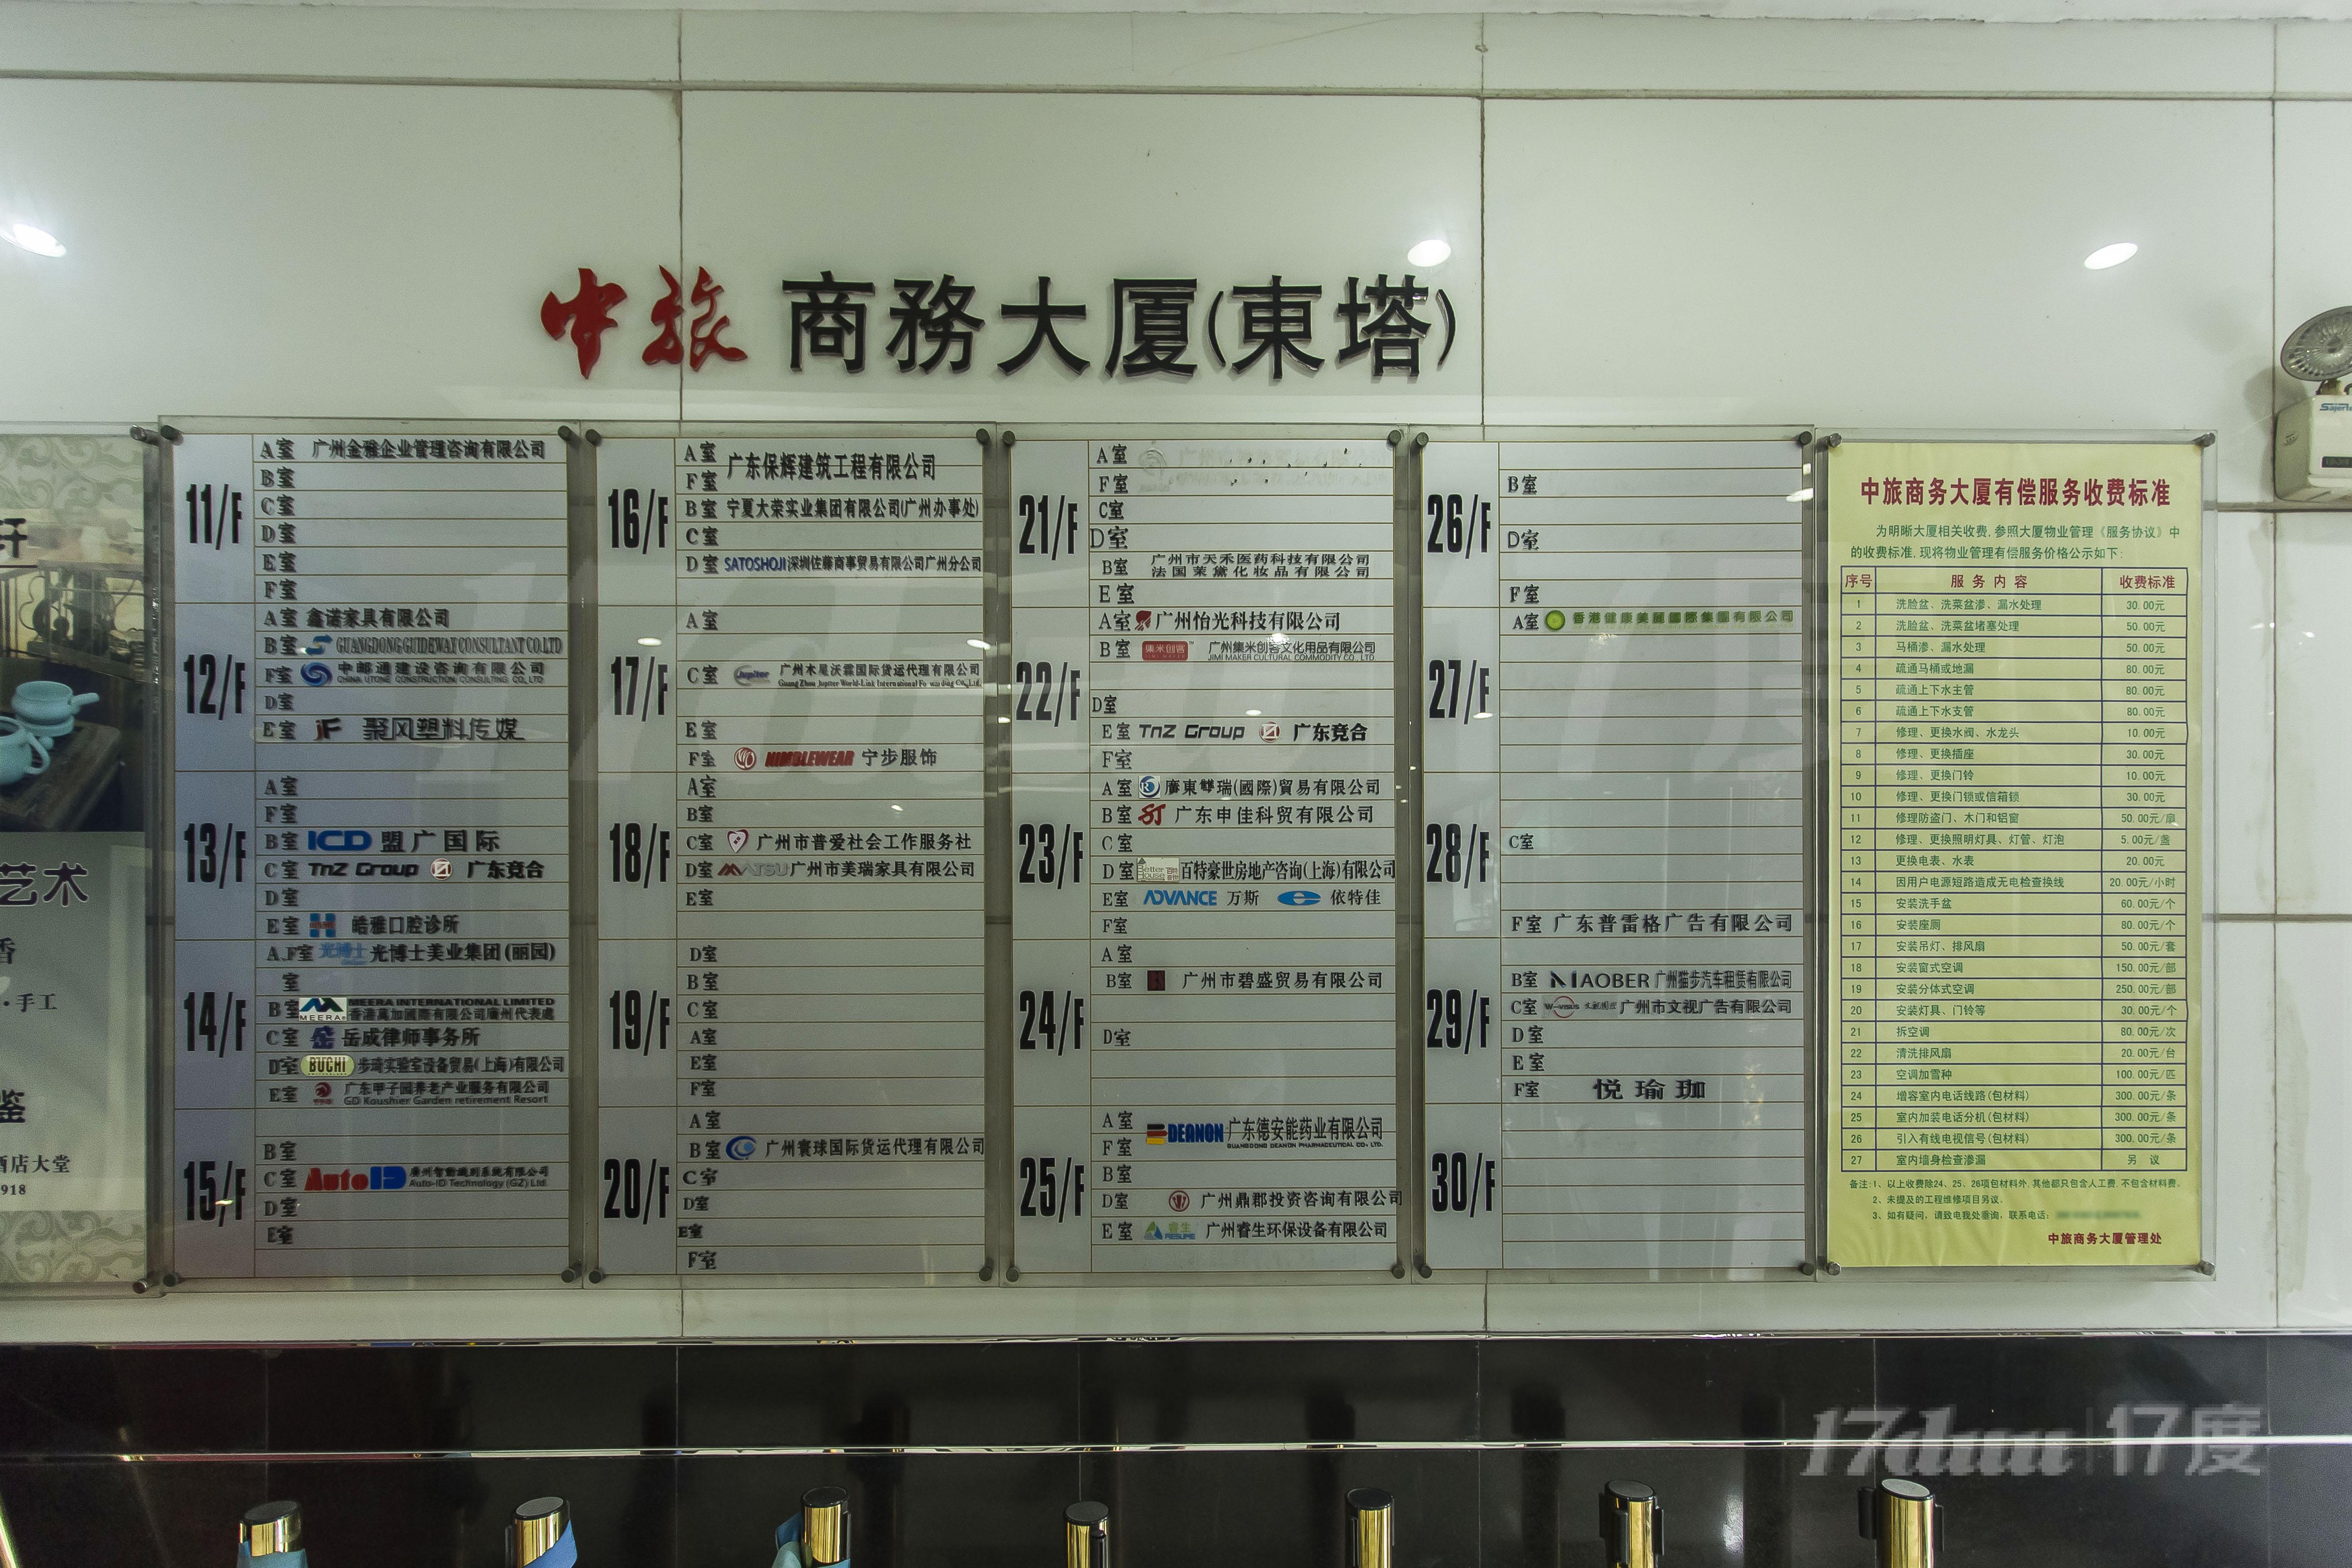 中旅 商務大厦(東塔)
11/F
A室 广州金雅企业管理咨询有限公司
B室
C室
D室
E室
F室
12/F
A室 鑫诺家具有限公司
B室 GUANGDONG GUIDEWAY CONSULTANT CO.LTD
F室 中邮通建设咨询有限公司
CHINA UTONE CONSTRUCTION CONSULTING CO., LTD
D室
E室 JF 聚风塑料传媒
13/F
A室
F室
B室 ICD 盟广国际
C室 TnZ Group 广东竞合
D室
E室 皓雅口腔诊所
14/F
A.F室 光博士 光博士美业集团(丽园)
室
B室 MEERA MEERA INTERNATIONAL LIMITED
香港萬加國際有限公司廣州代表處
C室 岳成律师事务所
D室 BUCHI 步琦实验室设备贸易(上海)有限公司
E室 广东甲子园养老产业服务有限公司
GD Koushier Garden retirement Resort
15/F
B室
C室 AutoID 廣州智動識別系統有限公司
Auto-ID Technology (GZ) Ltd.
D室
E室
16/F
A室
广东保辉建筑工程有限公司
F室
B室 宁夏大荣实业集团有限公司(广州办事处)
C室
D室 SATOSHOJI 深圳佐藤商事贸易有限公司广州分公司
17/F
A室
C室 Jupiter 广州木星沃霖国际货运代理有限公司
Guang Zhou Jupiter World-Link International Fo warding Co., Ltd
E室
F室 NIMBLEWEAR 宁步服饰
18/F
A室
B室
C室 广州市普爱社会工作服务社
D室 MATSU 广州市美瑞家具有限公司
E室
19/F
D室
B室
C室
A室
E室
F室
20/F
A室
B室 广州寰球国际货运代理有限公司
C室
D室
E室
F室
21/F
A室
F室
C室
D室
B室 广州市天禾医药科技有限公司
法国茉黛化妆品有限公司
E室
22/F
A室 广州怡光科技有限公司
B室 集米创客 广州集米创客文化用品有限公司
JIMI MAKER CULTURAL COMMODITY CO., LTD.
D室
E室 TnZ Group 广东竞合
F室
23/F
A室 廣東雙瑞(國際)貿易有限公司
B室 广东申佳科贸有限公司
C室
D室 Better House 百特豪世房地产咨询(上海)有限公司
E室 ADVANCE 万斯 依特佳
F室
24/F
A室
B室 广州市碧盛贸易有限公司
D室
25/F
A室
DEANON 广东德安能药业有限公司
GUANGDONG DEANON PHARMACEUTICAL CO., LTD.
F室
B室
D室 广州鼎郡投资咨询有限公司
E室 睿生 RESUME 广州睿生环保设备有限公司
26/F
B室
D室
F室
27/F
A室 香港健康美麗國際集團有限公司
28/F
C室
F室 广东普雷格广告有限公司
29/F
B室 MAOBER 广州猫步汽车租赁有限公司
C室 W-VISUS 广州市文视广告有限公司
D室
E室
F室 悦瑜珈
30/F
中旅商务大厦有偿服务收费标准
为明晰大厦相关收费,参照大厦物业管理《服务协议》中
的收费标准,现将物业管理有偿服务价格公示如下:
序号 服务内容 收费标准
1 洗脸盆、洗菜盆渗、漏水处理 30.00元
2 洗脸盆、洗菜盆堵塞处理 50.00元
3 马桶渗、漏水处理 50.00元
4 疏通马桶或地漏 80.00元
5 疏通上下水主管 80.00元
6 疏通上下水支管 80.00元
7 修理、更换水阀、水龙头 10.00元
8 修理、更换插座 30.00元
9 修理、更换门铃 10.00元
10 修理、更换门锁或信箱锁 30.00元
11 修理防盗门、木门和铝窗 50.00元/扇
12 修理、更换照明灯具、灯管、灯泡 5.00元/盏
13 更换电表、水表 20.00元
14 因用户电源短路造成无电检查换线 20.00元/小时
15 安装洗手盆 60.00元/个
16 安装座厕 80.00元/个
17 安装吊灯、排风扇 50.00元/套
18 安装窗式空调 150.00元/部
19 安装分体式空调 250.00元/部
20 安装灯具、门铃等 30.00元/个
21 拆空调 80.00元/次
22 清洗排风扇 20.00元/台
23 空调加雪种 100.00元/匹
24 增容室内电话线路(包材料) 300.00元/条
25 室内加装电话分机(包材料) 300.00元/条
26 引入有线电视信号(包材料) 300.00元/条
27 室内墙身检查渗漏 另 议
备注:1、以上收费除24、25、26项包材料外,其他都只包含人工费,不包含材料费。
2、未提及的工程维修项目另议。
3、如有疑问,请致电我处垂询,联系电话:
中旅商务大厦管理处
轩
艺术
香
·手工
鉴
酒店大堂
918
17duu 17度